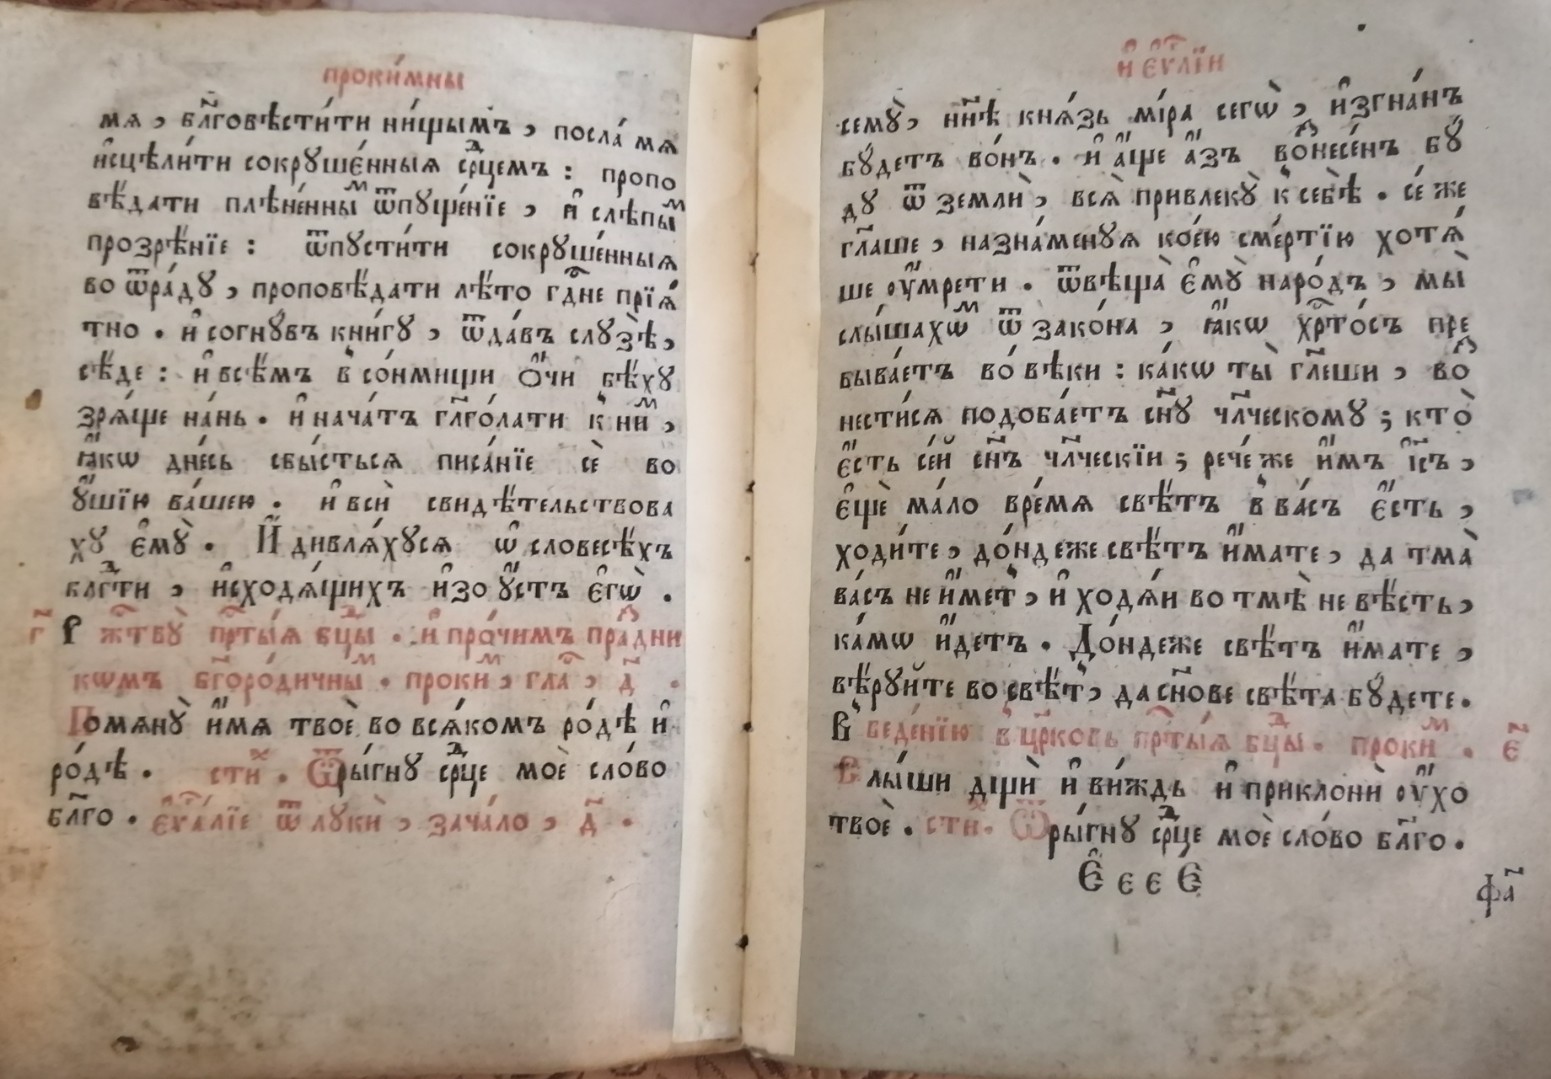 прокі́мны
мѧ , бл҃говѣсти́ти ни́щымъ , посла́ мѧ
и҆сцѣли́ти сокрꙋше́нныѧ срⷣцемъ : пропо
вѣ́дати плѣне́нныⷨ ѿпꙋще́нїе , и҆ слѣпы́ⷨ
прозрѣ́нїе : ѿпꙋсти́ти сокрꙋше́нныѧ
во ѿра́дꙋ , проповѣ́дати лѣ́то гдⷭ҇не прїѧ́
тно . и҆ согнꙋ́въ кни́гꙋ , ѿда́въ слꙋзѣ̀ ,
сѣ́де : и҆ всѣ́мъ в со́нмищи ѻ҆́чи бѣ́хꙋ
зрѧ́ще на́нь . и҆ нача́тъ гл҃го́лати к ни́ⷨ ,
ꙗ҆́кѡ дне́сь сбы́стьсѧ писа́нїе сѐ во
ꙋ҆́шїю ва́шею . и҆ всѝ свидѣ́тельствова
хꙋ є҆мꙋ̀ . И҆ дивлѧ́хꙋсѧ ѡ҆ словесѣ́хъ
блгⷣти , и҆сходѧ́щихъ и҆зо ꙋ҆́стъ є҆гѡ̀ .
г҃ Р жⷭ҇твꙋ̀ прⷭ҇ты́ѧ бцⷣы . и҆ про́чимъ пра́ⷥдни
кѡмъ бг҃оро́дичныⷨ . проки́ⷨ , гла́ⷭ , д҃ .
Помѧнꙋ̀ и҆́мѧ твоѐ во всѧ́комъ ро́дѣ и҆
ро́дѣ . сти́ⷯ . Ѿры́гнꙋ срⷣце моѐ сло́во
бл҃го . є҆ѵⷢ҇а́лїе ѿ лꙋкѝ , зача́ло , д҃ .
и҆ є҆ѵⷢ҇лїи
семꙋ̀ , нн҃ѣ кнѧ́зь мі́ра сегѡ̀ , и҆згна́нъ
бꙋ́детъ во́нъ . и҆ а҆́ще а҆́зъ воⷥнесе́нъ бꙋ́
дꙋ ѿ землѝ , всѧ̀ привлекꙋ̀ к себѣ̀ . се́ же
гл҃аше , назна́менꙋѧ ко́ею сме́ртїю хотѧ́
ше ᲂу҆мре́ти . ѿвѣща̀ є҆мꙋ̀ наро́дъ , мы̀
слы́шахѡⷨ ѿ зако́на , ꙗ҆́кѡ хрⷭ҇то́съ пре
быва́етъ во́ вѣки : ка́кѡ ты̀ гл҃еши , воⷥ
нести́сѧ подоба́етъ сн҃ꙋ чл҃ческомꙋ ; кто̀
є҆́сть се́й сн҃ъ чл҃ческїи ; рече́ же и҆̀мъ і҆с҃ъ ,
є҆щѐ ма́ло вре́мѧ свѣ́тъ в ва́съ є҆́сть ,
ходи́те , до́ндеже свѣ́тъ и҆́мате , да тма̀
ва́съ не и҆́метъ , и҆ ходѧ́и во тмѣ̀ не вѣ́сть ,
ка́мѡ и҆́детъ . До́ндеже свѣ́тъ и҆́мате ,
вѣ́рꙋйте во свѣ́тъ , да сн҃ове свѣ́та бꙋ́дете .
В веде́нїю в цр҃ковь прⷭ҇ты́ѧ бцⷣы . проки́ⷨ . є҃
Слы́ши дщѝ и҆ ви́ждь и҆ приклонѝ ᲂу҆́хо
твоѐ . сти́ⷯ . Ѿры́гнꙋ срⷣце моѐ сло́во бл҃го .
Є҆ є є Є
фа҃